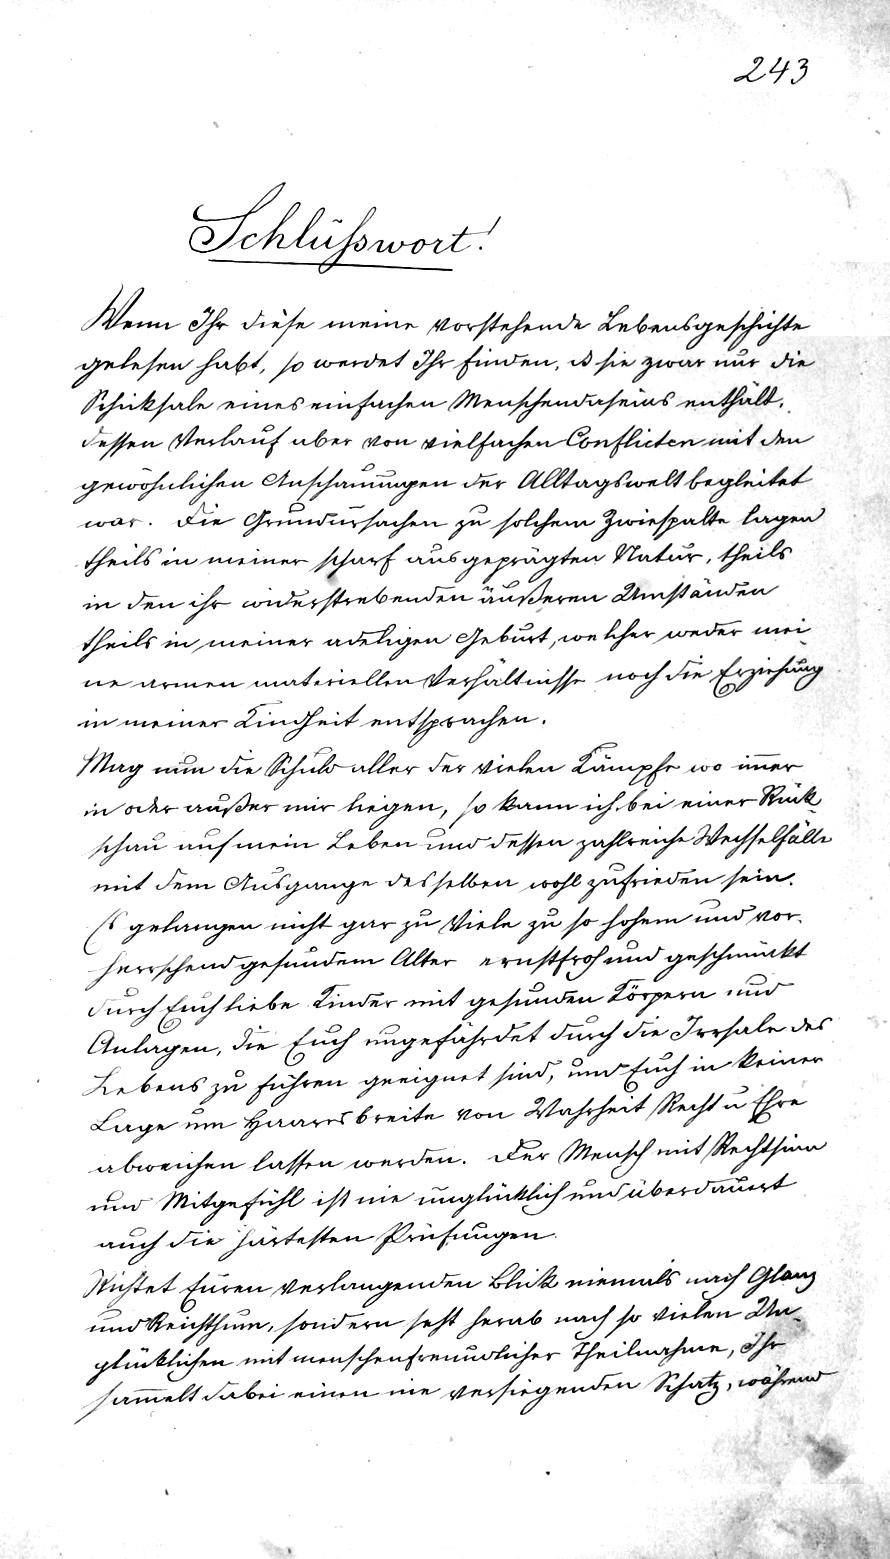 243
Schlußwort!
Wenn Ihr diese meine vorstehende Lebensgeschichte
gelesen habt, so werdet Ihr finden, daß sie zwar nur die
Schicksale eines einfachen Menschendaseins enthält,
dessen Verlauf aber von vielfachen Conflicten mit den
gewöhnlichen Anschauungen der Alltagswelt begleitet
war. Die Grundursachen zu solchem Zwiespalte lagen
theils in meiner scharf ausgeprägten Natur, theils
in den ihr widerstrebenden äußeren Umständen
theils in meiner adeligen Geburt, welcher weder mei-
ne armen materiellen Verhältnisse noch die Erziehung
in meiner Kindheit entsprachen.
Mag nun die Schuld aller der vielen Kämpfe wo im̅er
in oder außer mir liegen, so kann ich bei einer Rück-
schau auf mein Leben und dessen zahlreiche Wechselfälle
mit dem Ausgange desselben wohl zufrieden sein.
Es gelangen nicht gar zu Viele zu so hohem und vor-
herrschend gesundem Alter ernstfroh und geschmückt
durch Euch liebe Kinder mit gesunden Körpern und
Anlagen, die Euch ungefährdet durch die Irrsale des
Lebens zu führen geeignet sind, und Euch in keiner
Lage um Haaresbreite von Wahrheit Recht u Ehre
abweichen lassen werden. Der Mensch mit Rechtsinn
und Mitgefühl ist nie unglücklich und überdauert
auch die härtesten Prüfungen.
Richtet Euren verlangenden Blick niemals nach Glanz
und Reichthum, sondern seht herab nach so vielen Un-
glücklichen mit menschenfreundlicher Theilnahme, Ihr
sam̅elt dabei einen nie versiegenden Schatz, während